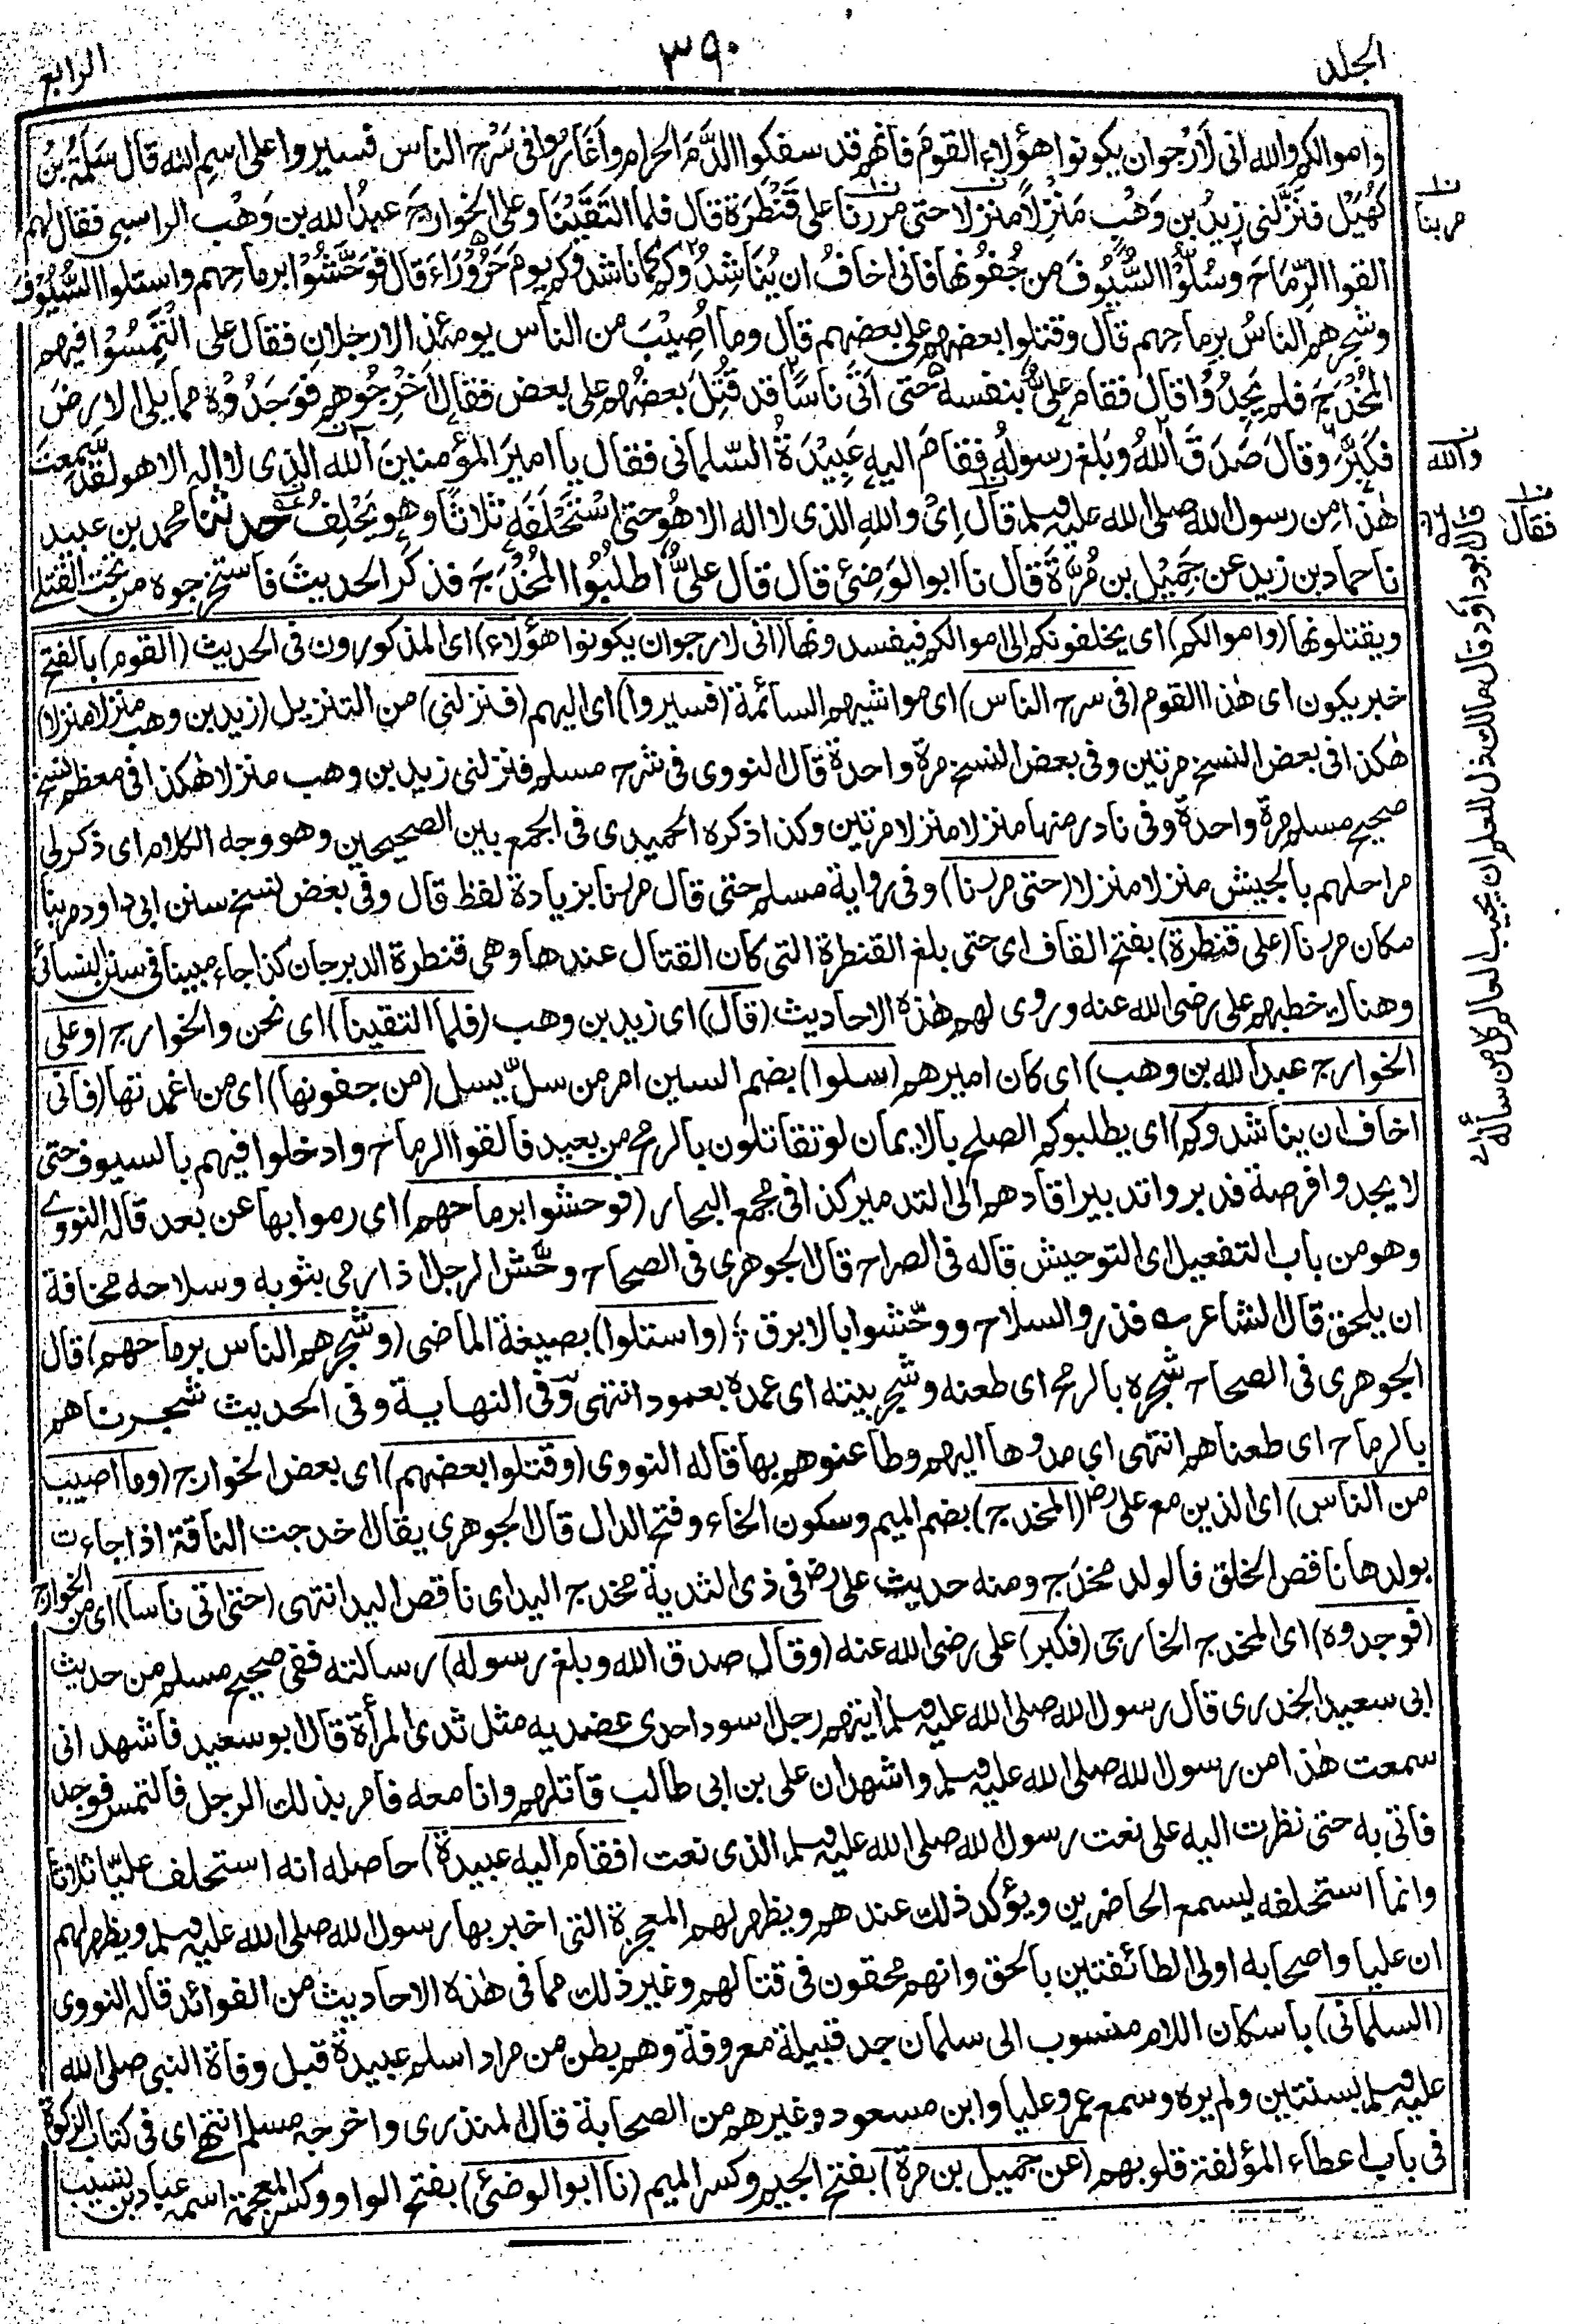 الجلد
٣٩٠
الرابع
واموالكم والله انى لَارْجوان يكونوا هؤلاءِ القومَ فانهم قد سفكوا الدَّمَ الحرام واَغَارُوا فى سَرْحِ الناس فسيروا على اسمِ الله قال سَلَمَةُ بنُ
كُهَيْل فنَزَّلنى زيدُ بن وَهْبٍ مَنْزِلًا منزلا حتى مررنا على قَنْطَرَةٍ قال فلما الْتَقَيْنَا وعلى الخوارج عبدُ الله بن وَهْب الراسبى فقال لهم
القوا الرِّمَاحَ وسُلُّوْا السُّيُوفَ من جُفُونِها فانى اخافُ ان يُنَاشِدُوكم كما ناشدوكم يومَ حَرُوْرَاءَ قال فوَحَّشُوْا برماحِهم واستلوا السُّيُوْفَ
وشَجَرهم الناسُ برِماحِهم قال وقتلوا بعضهم على بعضهم قال وما اُصِيْبَ من الناس يومئذ الا رجلانِ فقال على الْتَمِسُوْا فيهم
المُخْدَجَ فلم يَجِدُوْا قال فقام علىٌّ بنفسه حتى اَتَى ناسًا قد قُتِلَ بعضُهم على بعض فقال اَخْرِجُوهم فوَجَدُوْهُ مما يلى الارضَ
فكَبَّرَ وقال صَدَقَ اللهُ وبَلغ رسولُه فقامَ اليه عَبِيْدَةُ السّلمانى فقال يا اميرَ المؤمنين آلله الذى لا اله الا هو لقد سمعتَ
هٰذا مِن رسول الله صلى الله عليه وسلم قال اِىْ واللهِ الذى لا اله الا هُو حتى اسْتَحْلَفَه ثلاثًا وهو يَحْلِفُ حدثنا محمد بن عبيد
نا حماد بن زيد عن جَمِيْل بن مُرَّةَ قال نا ابو الوَضِئِ قال قال علىٌّ اُطلُبُوا المُخْدَجَ فذكر الحديثَ فاستخرجوه من تحت القتلى
ويقتلونها (واموالكم) اى يخلفونكم الى اموالكم فيفسدونها (انى لارجوان يكونوا هؤلاء) اى المذكورون فى الحديث (القوم) بالفتح
خبر يكون اى هٰذا القوم (فى سرح الناس) اى مواشيهم السائمة (فسيروا) اى اليهم (فنزلنى) من التنزيل (زيد بن وهب منزلا منزلا)
هٰكذا فى بعض النسخ مرتين وفى بعض النسخ مرة واحدة قال النووى فى شرح مسلم فنزلنى زيد بن وهب منزلا هٰكذا فى معظم نسخ
صحيح مسلم مرة واحدة وفى نادر منها منزلا منزلا مرتين وكذا ذكره الحميدى فى الجمع بين الصحيحين وهو وجه الكلام اى ذكر لى
مراحلهم بالجيش منزلا منزلا (حتى مررنا) وفى رواية مسلم حتى قال مررنا بزيادة لفظ قال وفى بعض نسخ سنن ابى داود مر بنا
مكان مررنا (على قنطرة) بفتح القاف اى حتى بلغ القنطرة التى كان القتال عندها وهى قنطرة الدبرجان كذا جاء مبينا فى سنن النسائى
وهناك خطبهم على رضى الله عنه وروى لهم هٰذه الاحاديث (قال) اى زيد بن وهب (فلما التقينا) اى نحن والخوارج (وعلى
الخوارج عبد الله بن وهب) اى كان اميرهم (سلوا) بضم السين امر من سلّ يسل (من جفونها) اى من اغمدتها (فانى
اخاف ان يناشدوكم) اى يطلبوكم الصلح بالايمان لو تقاتلون بالرمح من بعيد فالقوا الرماح وادخلوا فيهم بالسيوف حتى
لا يجدوا فرصة فدبروا تدبيرا قادهم الى التدمير كذا فى مجمع البحار (فوحشوا برماحهم) اى رموا بها عن بعد قاله النووى
وهو من باب التفعيل اى التوحيش قاله فى الصراح قال الجوهرى فى الصحاح وحّش الرجل اذا رمى بثوبه وسلاحه مخافة
ان يلحق قال الشاعر ؎ فذروالسلاح ووحّشوا بالابرق ؛ (واستلوا) بصيغة الماضى (وشجرهم الناس برماحهم) قال
الجوهرى فى الصحاح شجره بالرمح اى طعنه وشجر بيته اى عمده بعمود انتهى وفى النهاية وفى الحديث شجرناهم
بالرماح اى طعناهم انتهى اى مدوها اليهم وطاعنوهم بها قاله النووى (وقتلوا بعضهم) اى بعض الخوارج (وما اصيب
من الناس) اى الذين مع على رض (المخدج) بضم الميم وسكون الخاء وفتح الدال قال الجوهرى يقال اخدجت الناقة اذا جاءت
بولدها ناقص الخلق فالولد مخدَج ومنه حديث على رض فى ذى الثدية مخدج اليد اى ناقص اليد انتهى (حتى اتى ناسا) اى من الخوارج
(فوجدوه) اى المخدج الخارجى (فكبر) على رضى الله عنه (وقال صدق الله وبلغ رسوله) رسالته ففى صحيح مسلم من حديث
ابى سعيد الخدرى قال رسول الله صلى الله عليه وسلم ايتهم رجل اسود احدى عضديه مثل ثدى المرأة قال ابو سعيد فاشهد انى
سمعت هٰذا من رسول الله صلى الله عليه وسلم واشهد ان على بن ابى طالب قاتلهم وانا معه فامر بذلك الرجل فالتمس فوجد
فاتى به حتى نظرت اليه على نعت رسول الله صلى الله عليه وسلم الذى نعت (فقام اليه عبيدة) حاصله انه استحلف عليّا ثلاثا
وانما استحلفه ليسمع الحاضرين ويؤكد ذلك عندهم ويظهر لهم المعجزة التى اخبر بها رسول الله صلى الله عليه وسلم ويظهر لهم
ان عليا واصحابه اولى الطائفتين بالحق وانهم محقون فى قتالهم وغير ذلك مما فى هٰذه الاحاديث من الفوائد قاله النووى
(السلمانى) باسكان اللام منسوب الى سلمان جد قبيلة معروفة وهم بطن من مراد اسلم عبيدة قبل وفاة النبى صلى الله
عليه وسلم بسنتين ولم يره وسمع عمر وعليا وابن مسعود وغيرهم من الصحابة قال المنذرى واخرجه مسلم انتهى اى فى كتاب الزكوة
فى باب اعطاء المؤلفة قلوبهم (عن جميل بن مرة) بفتح الجيم وكسر الميم (نا ابو الوضئ) بفتح الواو وكسر المعجمة اسمه عباد بن نسيب
مر بنا
والله
فقال
قال ابو داؤد قال مالك ذل للعلم ان يجيب العالم كل من سأله